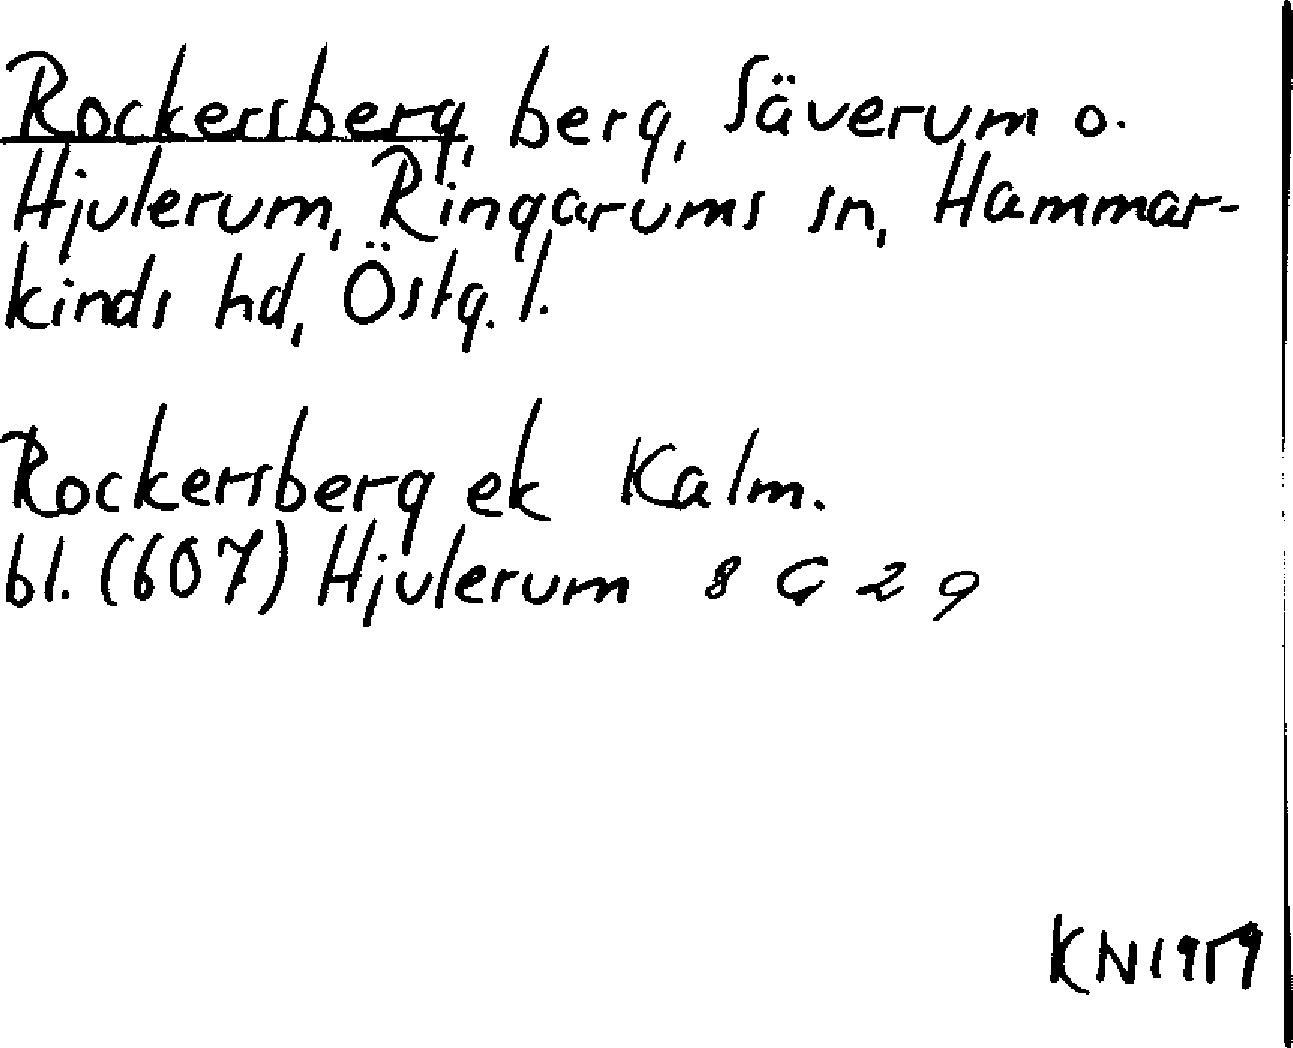 Rockersberg, berg, Säverum o.
Hjulerum, Ringarums sn, Hammar-
kinds hd, Östg. l.
Rockersberg ek Kalm.
bl. (607) Hjulerum 8 G 2 g
KN 1959